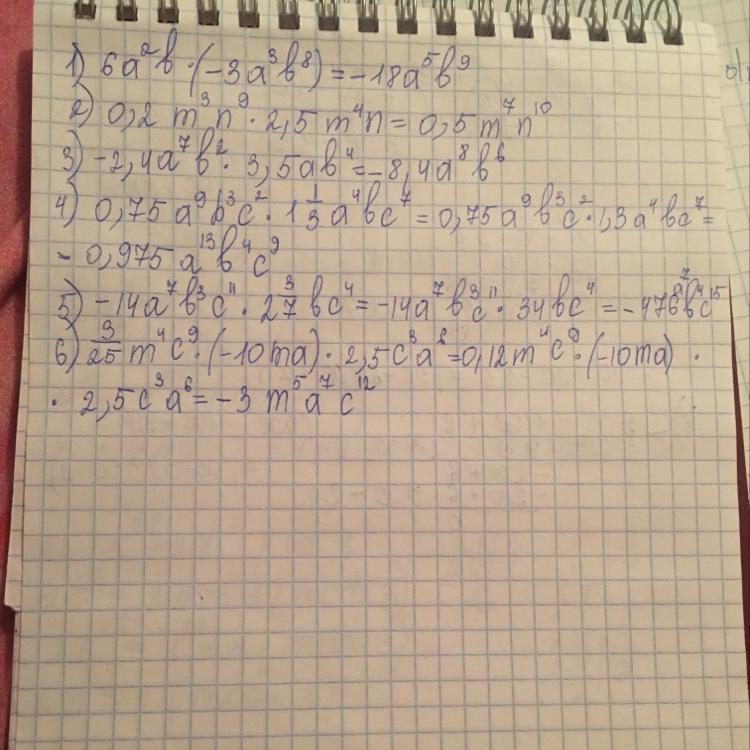 1) 6a²b · (-3a³b⁸) = -18a⁵b⁹
2) 0,2 m³n⁹ · 2,5 m⁴n = 0,5m⁷n¹⁰
3) -2,4a⁷b² · 3,5ab⁴ = -8,4a⁸b⁶
4) 0,75a⁹b³c² · 1 1/3 a⁴bc⁷ = 0,75a⁹b³c² · 1,3a⁴bc⁷ =
- 0,975a¹³b⁴c⁹
5) -14a⁷b³c¹¹ · 2 3/7 bc⁴ = -14a⁷b³c¹¹ · 34bc⁴ = -476a⁷b⁴c¹⁵
6) 3/25 m⁴c⁹ · (-10ma) · 2,5c³a⁶ = 0,12m⁴c⁹ · (-10ma) ·
· 2,5c³a⁶ = -3 m⁵a⁷c¹²